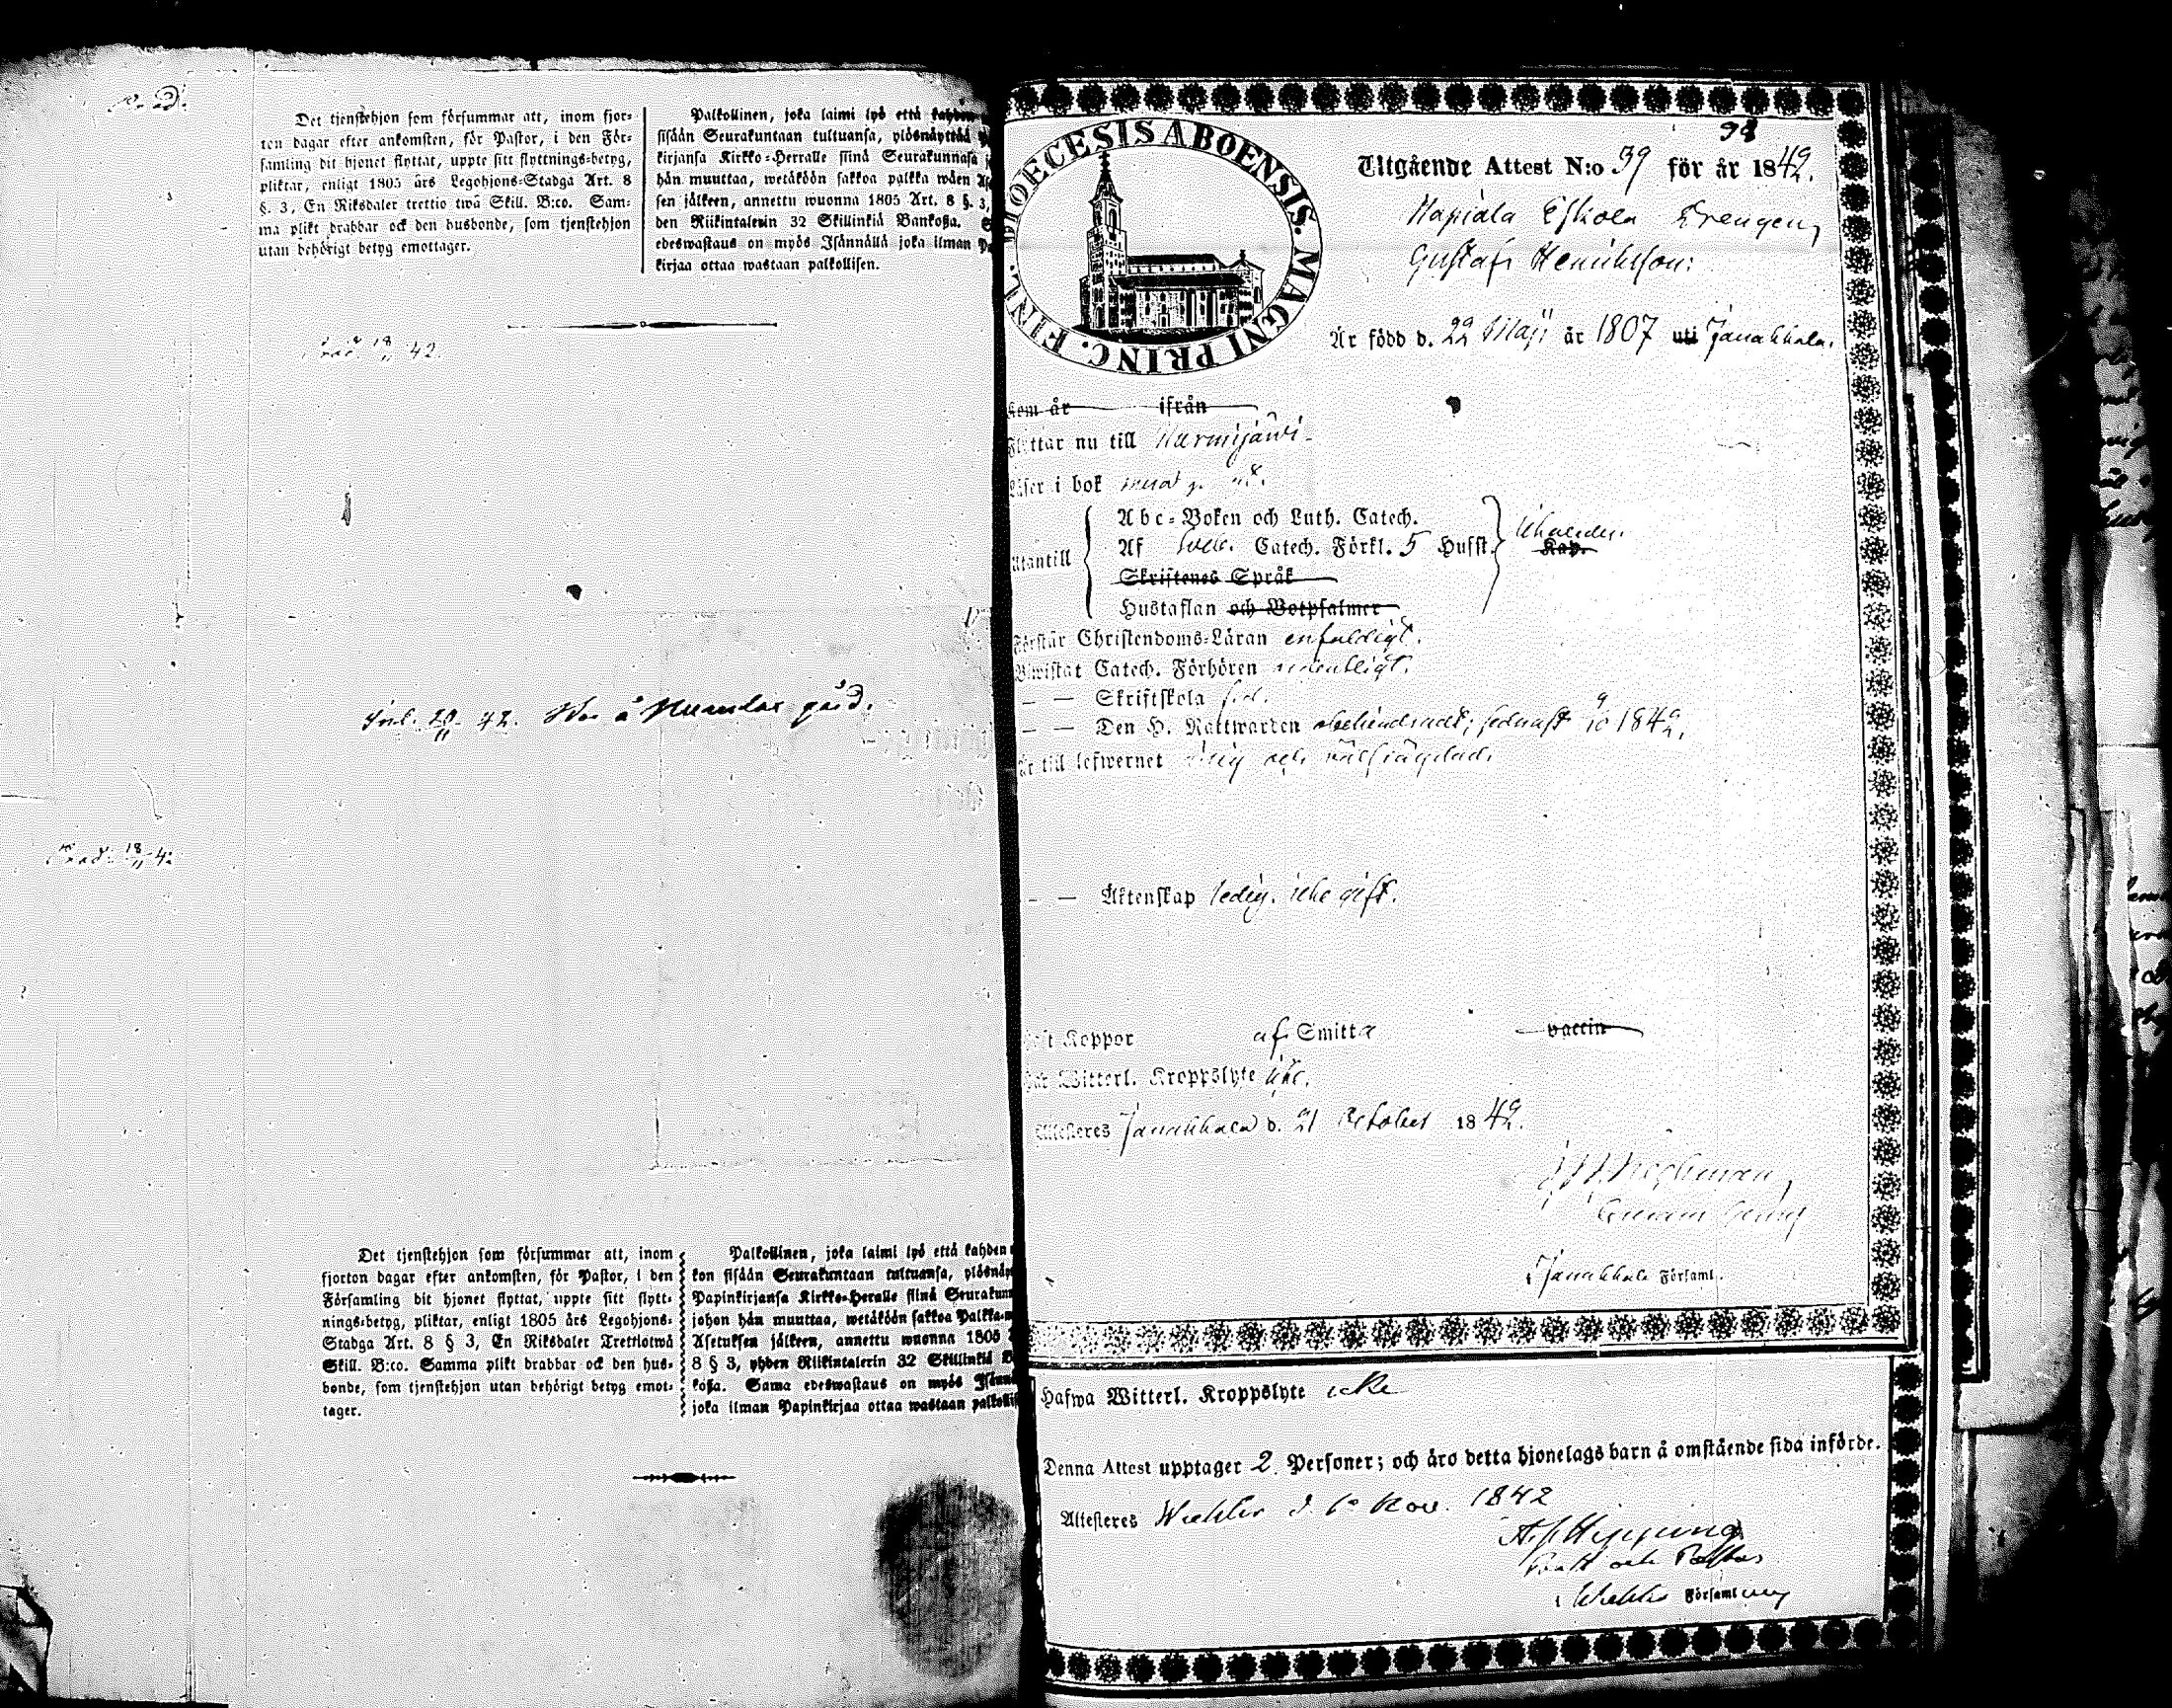 Det tjenstehjon som försummar att, inom fjor-
ton dagar efter ankomsten, för Pastor, i den För-
samling dit hjonet flyttat, uppte sitt flyttnings-betyg,
pliktar, enligt 1805 års Legohjons-Stadga Art. 8
§. 3, En Riksdaler trettio twå Skill. B:co. Sam-
ma plikt drabbar ock den husbonde, som tjenstehjon
utan behörigt betyg emottager.
Palkollinen, joka laimi lyö että kahden
sisään Seurakuntaan tultuansa, ylösnäyttää
kirjansa Kirkko-Herralle siinä Seurakunnasa
hän muuttaa, wetäköön sakkoa palkka wäen
sen jälkeen, annettu wuonna 1805 Art. 8 §. 3,
den Riikintalerin 32 Skillinkiä Bankoßa.
edeswastaus on myös Isännällä joka ilman
kirjaa ottaa wastaan palkollisen.
18/11 42.
Inl. 20/11 42. Wes å Numlax gård.
18/11 4
Det tjenstehjon som försummar att, inom
fjorton dagar efter ankomsten, för Pastor, i den
Församling dit hjonet flyttat, uppte sitt flytt-
nings-betyg, pliktar, enligt 1805 års Legohjons-
Stadga Art. 8 § 3, En Riksdaler Trettiotwå
Skill. B:co. Samma plikt drabbar ock den hus-
bonde, som tjenstehjon utan behörigt betyg emot-
tager.
Palkollinen, joka laimi lyö että kahden
kon sisään Seurakuntaan tultuansa,
Papinkirjansa Kirkko-Heralle siinä
johon hän muuttaa, wetäköön sakkoa
Asetuksen jälkeen, annettu wuonna 1805
8 § 3, yhden Riikintalerin 32 Skillinkiä
koßa. Sama edeswastaus on myös
joka ilman Papinkirjaa ottaa wastaan
DIOECESIS ABOENSIS. MAGNI PRINC. FINL.
Utgående Attest N:o 39 för år 1842.
Napiala Eskola Drengen,
Gustaf Henriksson:
Är född d. 22 Maji år 1807 uti Janakkala.
Kom år ifrån
Flyttar nu till Nurmijärvi
Läser i bok
Utantill
Abc-Boken och Luth. Catech.
Af Catech. Förkl. 5 Husst.
Kap.
Skriftenes Språk
Hustaflan och Botpsalmer
Förstår Christendoms-Läran enfaldigt.
Biwistat Catech. Förhören ordentligt.
— — Skriftskola
— — Den H. Nattwarden obehindradt; sednast 9/10 1842.
Är till lefwernet ärlig och välfrägdad.
— — Äktenskap ledig. icke gift.
Haft Koppor af Smitta vaccin
Har Witterl. Kroppslyte icke.
Attesteres Janakkala d. 21 October 1842.
Janakkala Församl.
Hafwa Witterl. Kroppslyte icke
Denna Attest upptager 2 Personer; och äro detta hjonelags barn å omstående sida införde.
Attesteres Wichtis d. 10 Nov. 1842
A. J. Hipping
Prost och Pastor
i Wichtis Församling